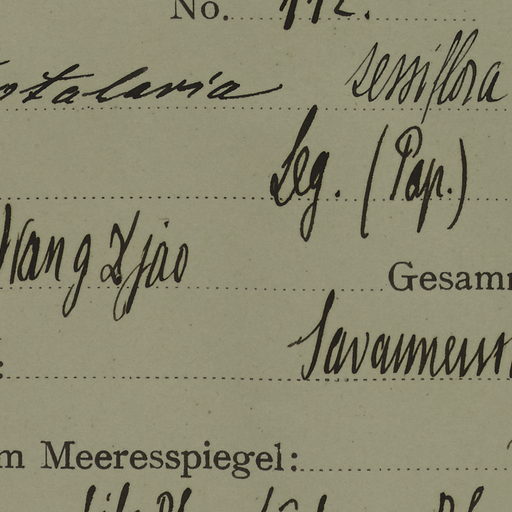 No. 112.
otalaria sessiflora
Leg. (Pap.)
Wang Djao
Gesamm
:
m Meeresspiegel: